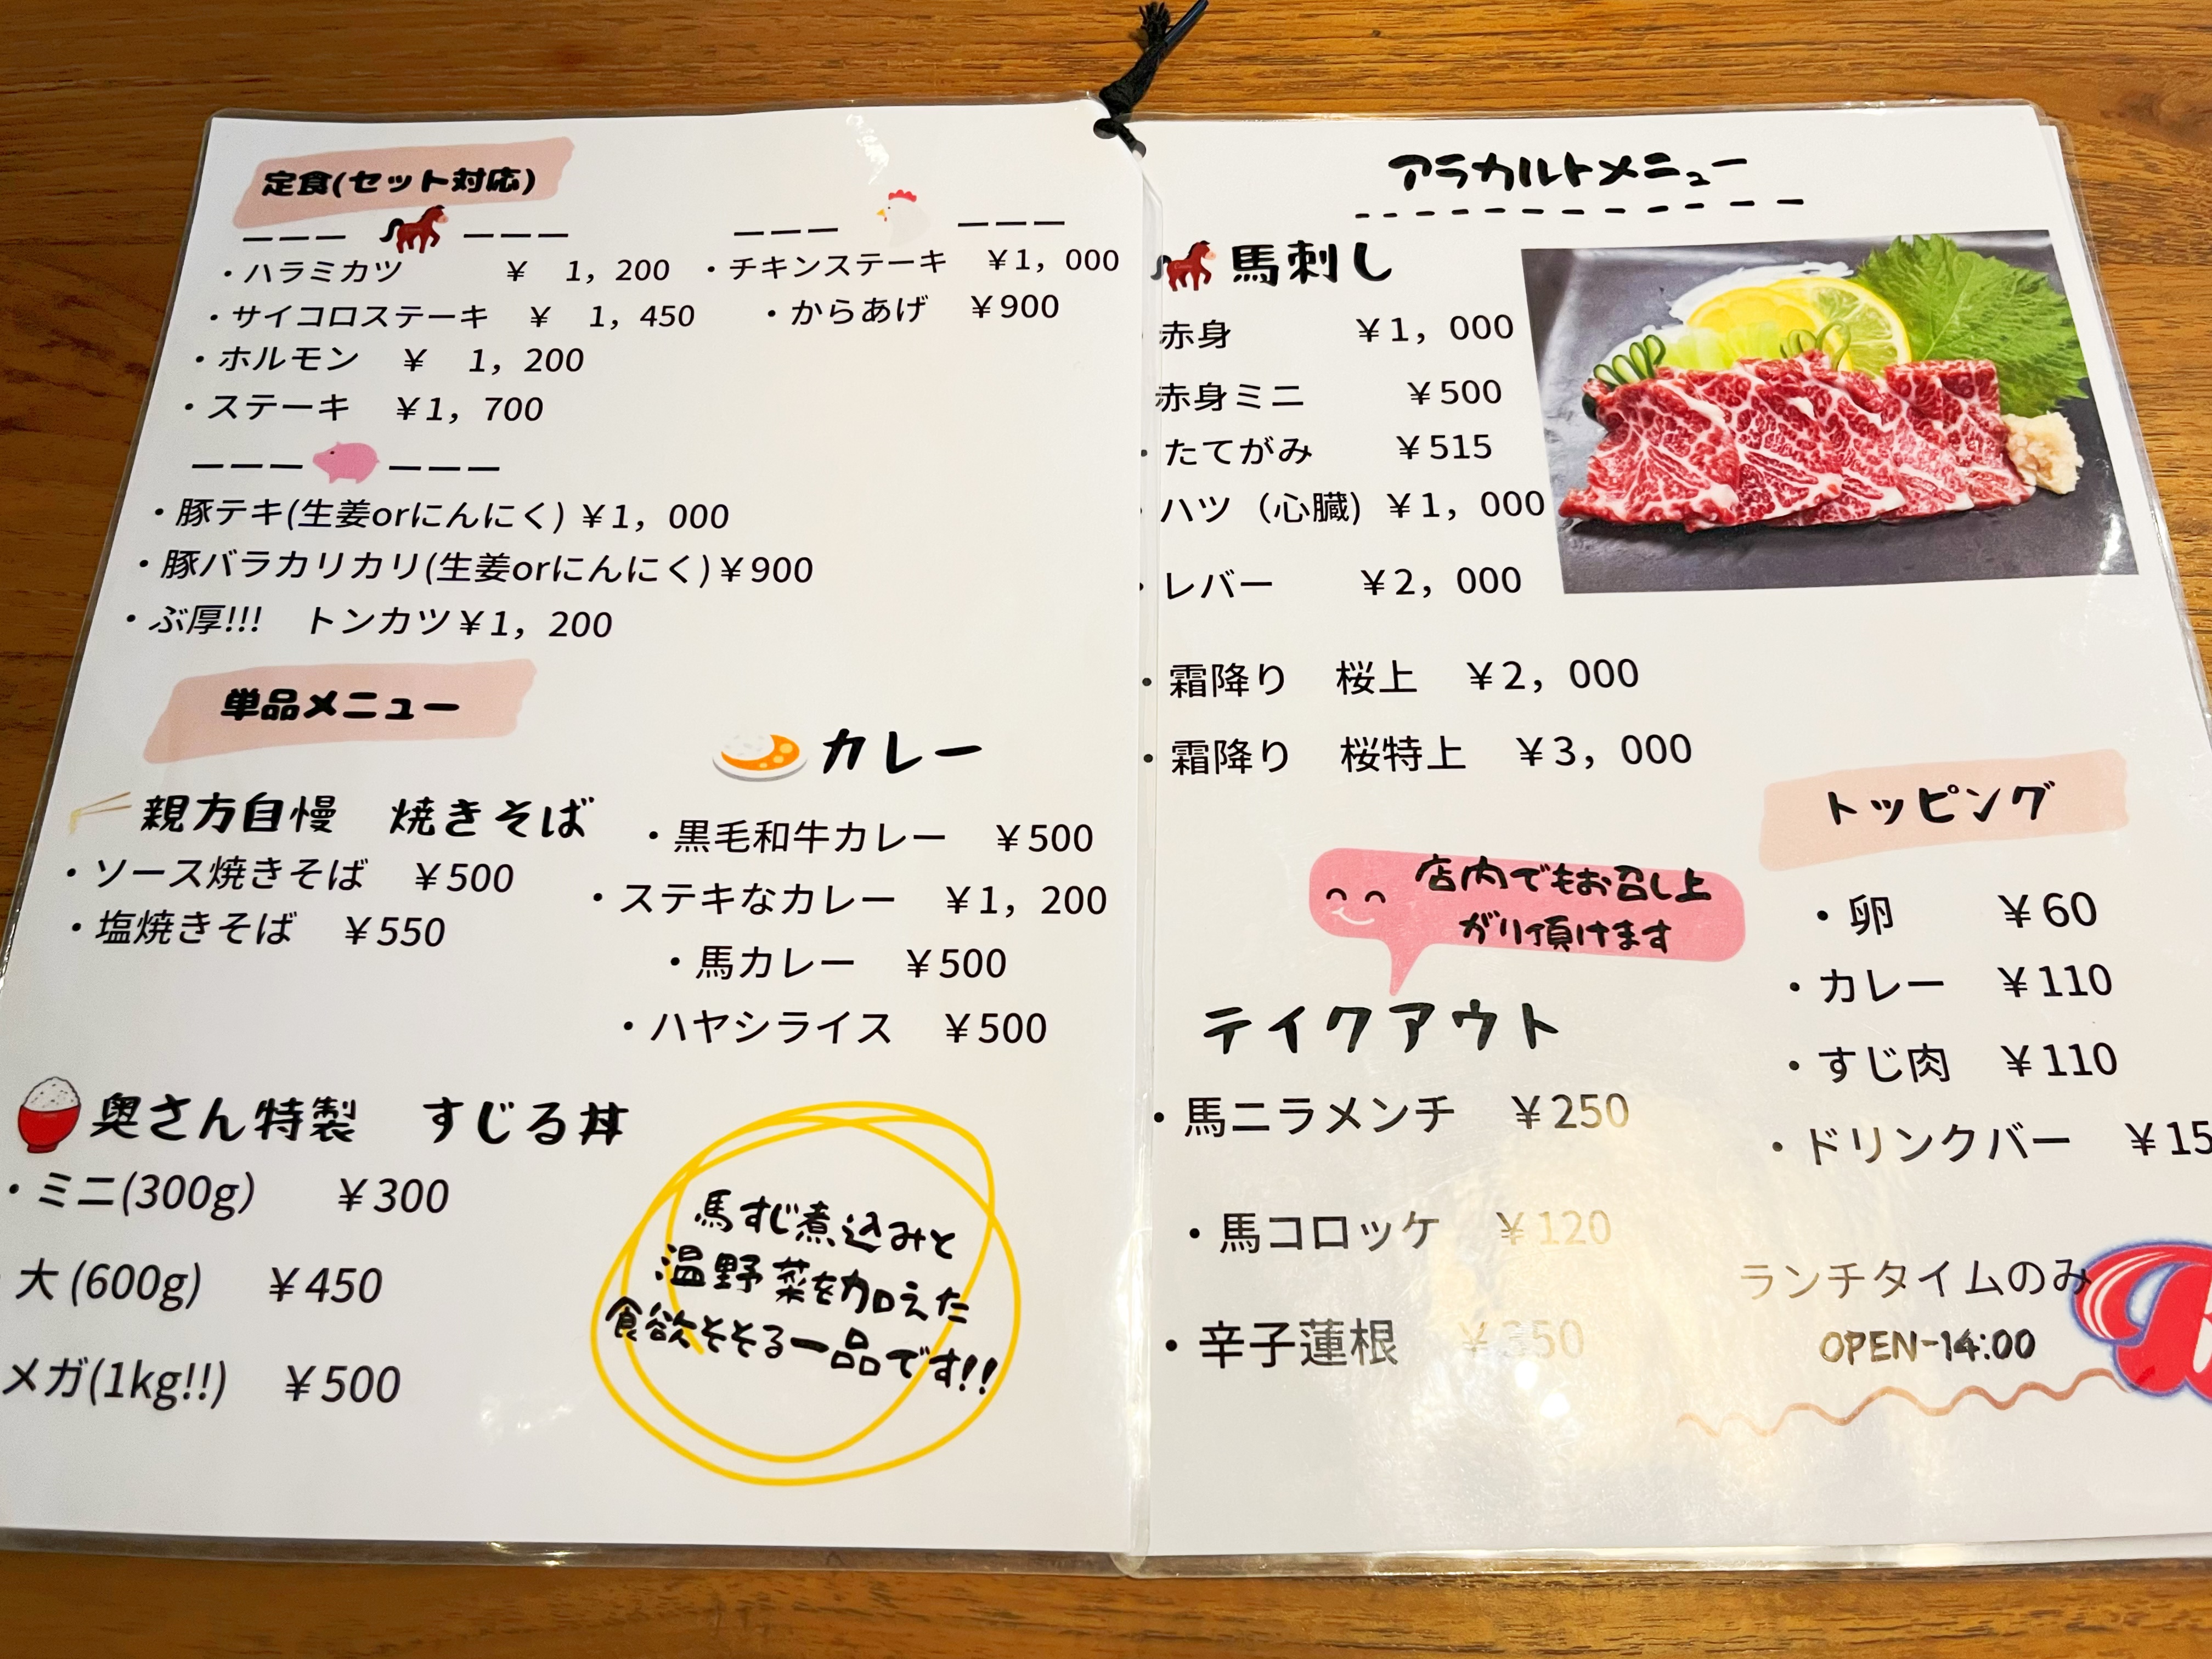 定食(セット対応)
・ハラミカツ ￥ 1，200
・サイコロステーキ ￥ 1，450
・ホルモン ￥ 1，200
・ステーキ ￥1，700
・チキンステーキ ￥1，000
・からあげ ￥900
・豚テキ(生姜orにんにく) ￥1，000
・豚バラカリカリ(生姜orにんにく)￥900
・ぶ厚!!! トンカツ￥1，200
単品メニュー
親方自慢 焼きそば
・ソース焼きそば ￥500
・塩焼きそば ￥550
カレー
・黒毛和牛カレー ￥500
・ステキなカレー ￥1，200
・馬カレー ￥500
・ハヤシライス ￥500
奥さん特製 すじる丼
・ミニ(300g） ￥300
大 (600g) ￥450
メガ(1kg!!) ￥500
馬すじ煮込みと
温野菜を加えた
食欲そそる一品です!!
アラカルトメニュー
馬刺し
・赤身 ￥1，000
赤身ミニ ￥500
・たてがみ ￥515
・ハツ（心臓) ￥1，000
・レバー ￥2，000
・霜降り 桜上 ￥2，000
・霜降り 桜特上 ￥3，000
店内でもお召し上
がり頂けます
テイクアウト
・馬ニラメンチ ￥250
・馬コロッケ ￥120
・辛子蓮根
トッピング
・卵 ￥60
・カレー ￥110
・すじ肉 ￥110
・ドリンクバー ￥15
ランチタイムのみ
OPEN-14:00